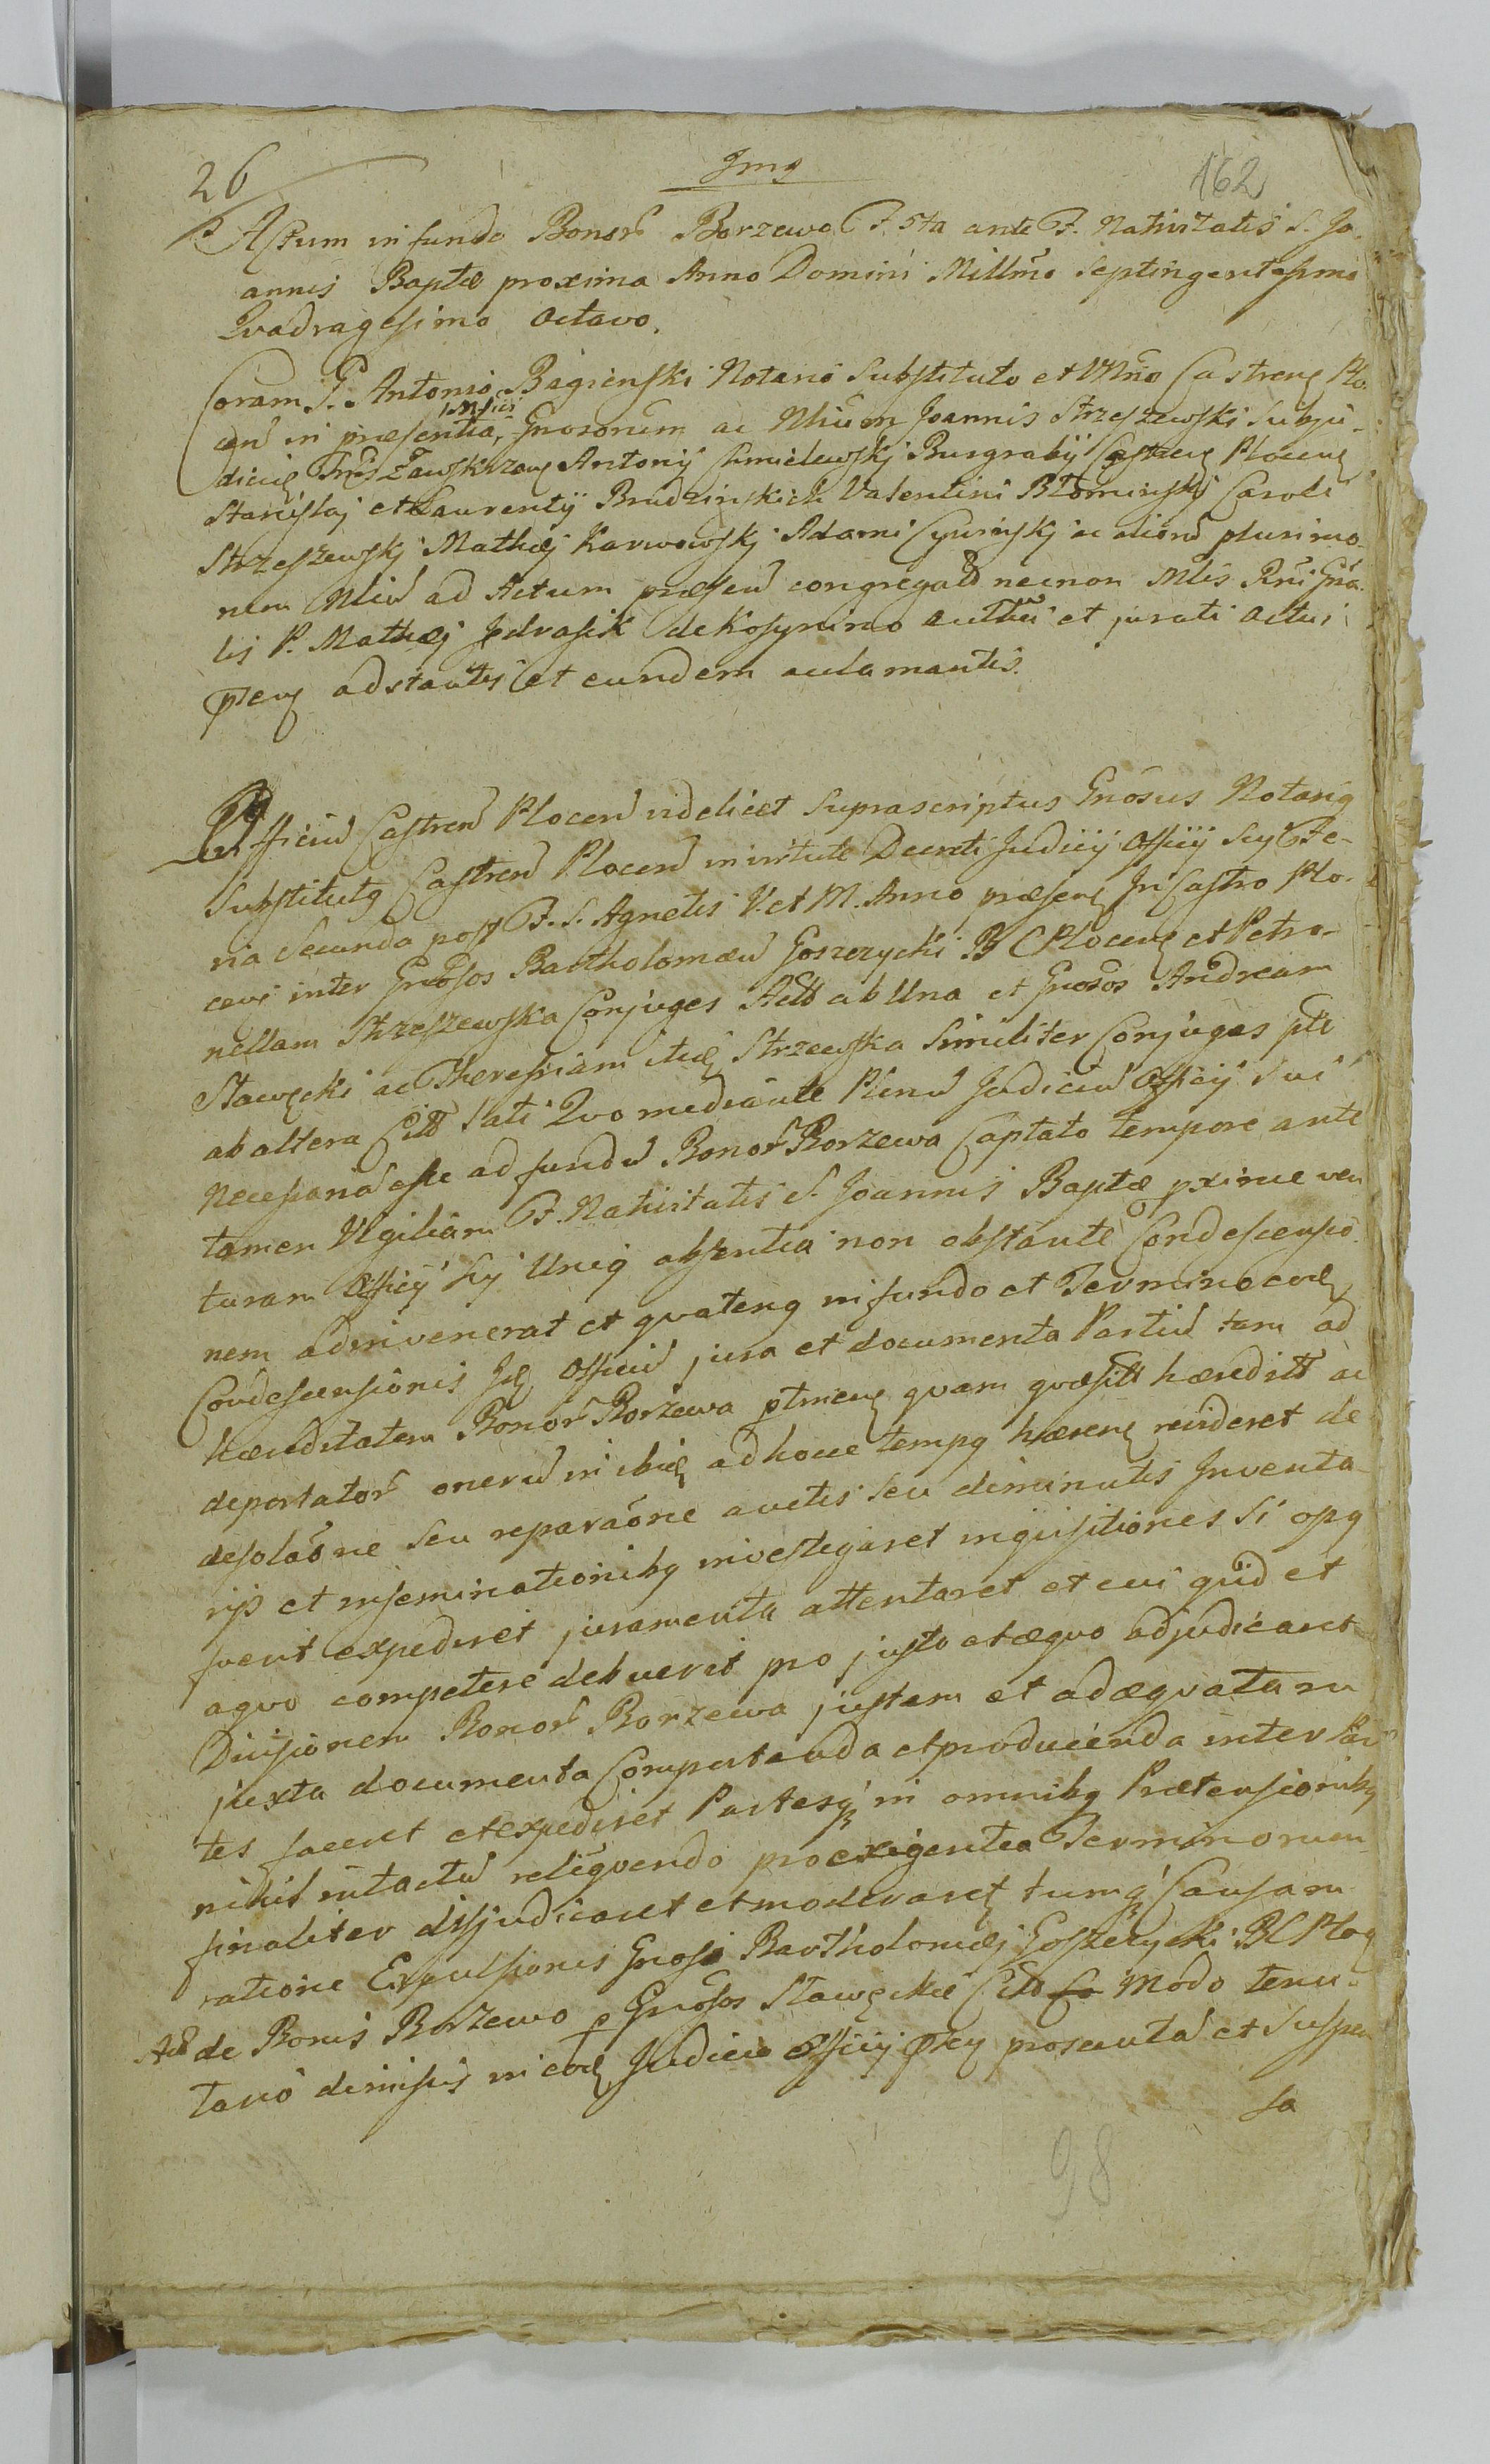 26
Jmg
162
Actum in fundo Bonor Borzewo F. 5ta ante F. Nativitatis S. Jo-
annis Baptæ proxima Anno Domini Millmo Septingentesimo
Qvadragesimo Octavo.
Coram G. Antonio Bagienski Notario Substituto et Castren Plo-
cen in præsentia, Gnosorum ac Nlium Joannis Strzeszewski Subju-
dicis Zawskrzen Antonij Chmielewskj Burgrabij Castren Plocen
Stanislaj et Laurentij Brudzinskich Valentini Błominskj Caroli
Strzeszewskj Mathæj Karwowskj Adami Cyvinskj ac alior plurimo-
rum Nliu ad Actum præsen congregat necnon Mlis Rni Gna-
lis P. Mathæj Jedrasik de Kosynino authen et jurati actui
pten adstantis et eundem aclamantis.
Officiu Castren Plocen videlicet Suprascriptus Gnosus Notarig
Substitutg Castren Plocen in virtute Decreti Judicij Officij Sui Fe-
ria Secunda post F. S. Agnetis V. et M. Anno præsen In Castro Plo-
cen inter Gnosos Bartholomæu Goszczycki B C Plocen et Petro-
nellam Strzeszewska Conjuges Actt ab Una et Gnosos Andream
Sławęcki ac Theresiam itid Strzeszewska Similiter Conjuges pte
ab altera Citt lati Qvo mediante Plenu Judiciu Officij Sui
Necessariu esse ad fundu Bonor Borzewa Captato tempore ante
tamen Vigiliam F. Nativitatis S. Joannis Baptæ pxime ven
turam Officij Sui Unig absentia non obstante Condescensio-
nem adinvenerat et qvateng in fundo et Termino eod
Condescensionis Id Officiu jura et documenta Partiu tam ad
hæreditatem Bonor Borzewa ptinen qvam qvæsitt hæreditt ac
deportator oneru in ibid ad hocce tempg hæren revideret de
desolaone seu reparaone auctis seu diminutis Inventa-
rijs et inseminationibg investigaret inqvisitiones si opg
fuerit expediret juramenta attentaret et cui qvid et
a qvo competere debuerit pro justo et æqvo adjudicaret
Divisionem Bonor Borzewa justam et adæqvatam
juxta documenta Comportanda et producenda inter Par
tes faceret et expediret Partesq in omnibg Prætensionibg
nihil intactu relinqvendo pro exigentia Terminorum
finaliter disjudicaret et moderaret tumq Causam
ratione Expulsionis Gnosi Bartholomæj Goszczycki B C Plog
Act de Bonis Borzewo p Gnosos Sławęckie Citt Modo tenu-
tario dimissis in eod Judicio Officij pten prosecuta et Suspen
sa
98